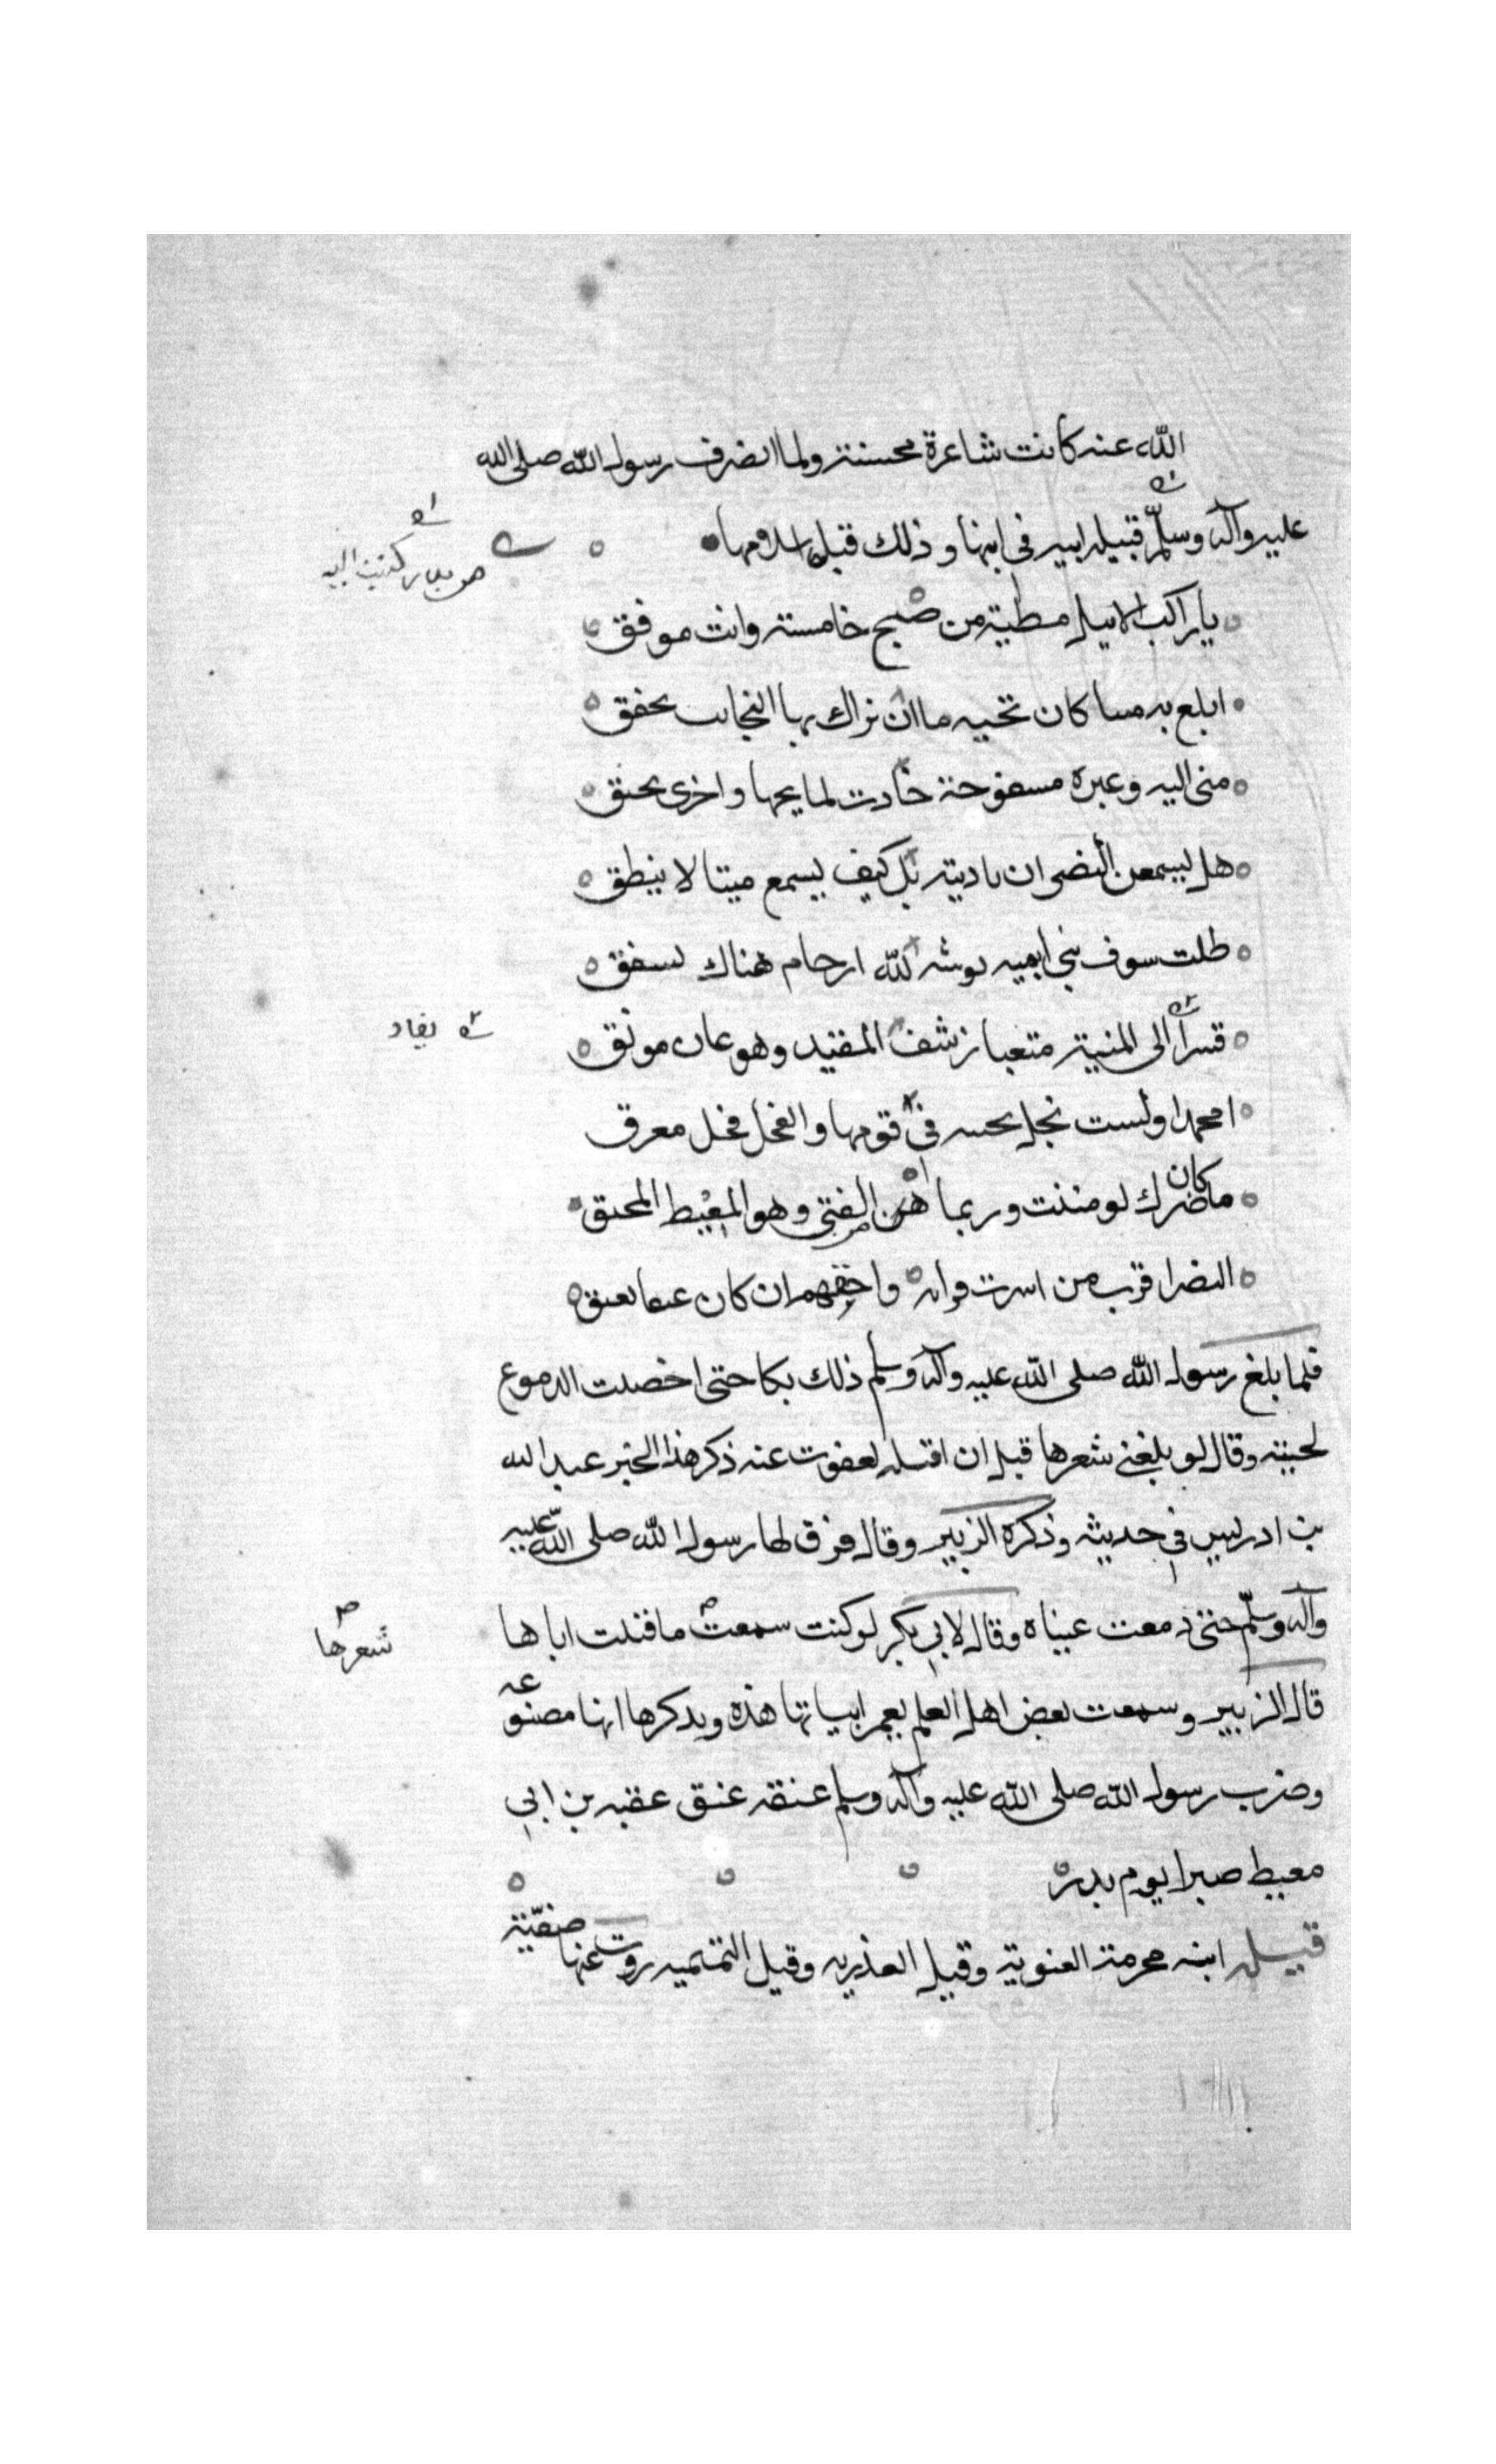 الله عنه كانت شاعرة محسنة ولما انصرف رسول الله صلى الله
عليه وآله وسلم قتيله ابيه في ابنها وذلك قبل اسلامها
من بدر كتبت اليه
يا راكبا الاثيل مطية من صبح خامسة وانت موفق
ابلغ به ميتا كان تحيه ما ان نزال بها النجاىب تحفق
منى اليه وعبرة مسفوحة جادت لمايحها واخرى تحنق
هل يسمعن النضر ان ناديته بل كيف يسمع ميتا لا ينطق
ظلت سيوف بني ابيه ىوشه لله ارحام هناك ىسفق
قسرا الى المنية متعبا رسف المقيد وهو عان موثق
يقاد
امحمدا ولست نجل ىحىىه في قومها والفحل فحل معرق
ما كان ضرك لو مننت وربما من الفتى وهو المغيط المحنق
النضر اقرب من اسرت قرابه واحقهم ان كان عىقا ىعىق
فلما بلغ رسول الله صلى الله عليه وآله وسلم ذلك بكا حتى اخضلت الدموع
لحيته وقال لو بلغني شعرها قبل ان اقتله لعفوت عنه ذكر هذا الخبر عبد الله
بن ادريس في حديثه وذكره الزبير وقال فرق لها رسول الله صلى الله عليه
وآله وسلم حتى دمعت عيناه وقال لابي بكر لو كنت سمعت ما قتلت اباها
شعرها
قال الزبير وسمعت بعض اهل العلم يغمز ابياتها هذه ويذكر ها انها مصنوعه
وضرب رسول الله صلى الله عليه وآله وسلم عنقه عنق عقبه بن ابي
معيط صبرا يوم بدر
قيله ابنه مخرمة الغنوية وقيل العنزيه وقيل التميميه روت عنها صفيّة